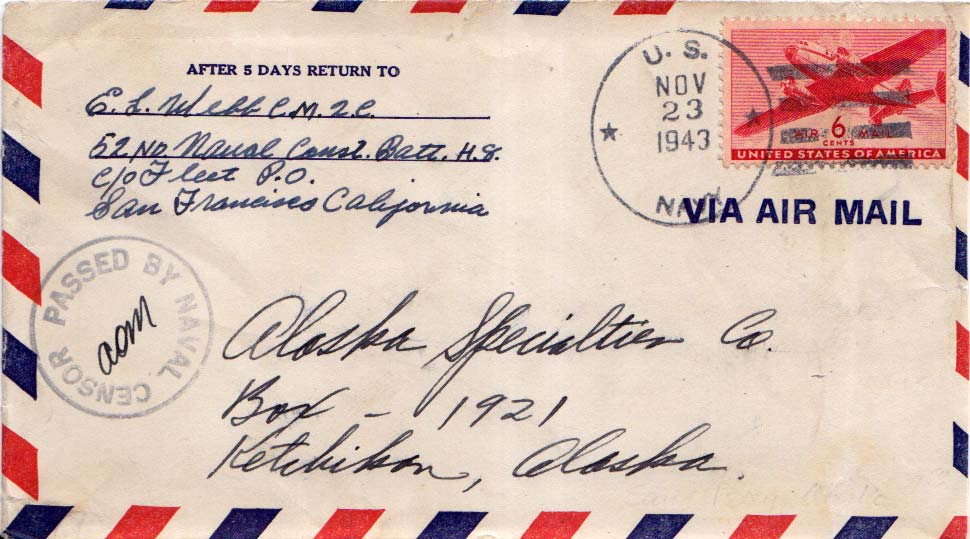 AFTER 5 DAYS RETURN TO
E. L. Webb C.M. 2.C.
52 ND Naval Const. Batt. H.S.
C/O Fleet P.O.
San Francisco California
U. S.
NOV
23
1943
NAVY
AIR 6 MAIL
CENTS
UNITED STATES OF AMERICA
VIA AIR MAIL
PASSED BY NAVAL CENSOR
aom
Alaska Specialties Co.
Box - 1921
Ketchikan, Alaska.